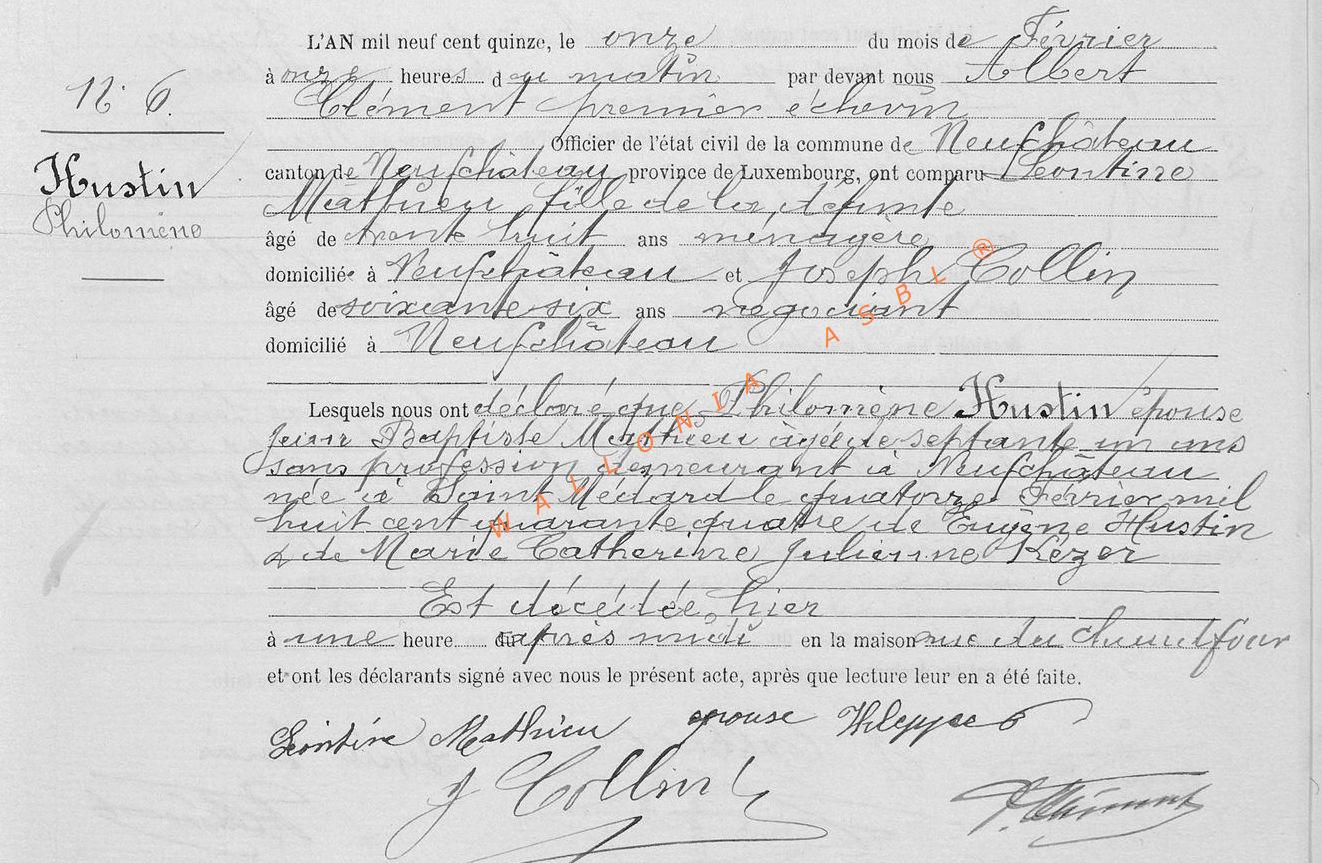 L'AN mil neuf cent quinze, le onze du mois de Février
à onze heures du matin par devant nous Albert
Clément premier échevin
N° 6.
Officier de l'état civil de la commune de Neufchâteau
Hustin
Philomène
canton de Neufchâteau province de Luxembourg, ont comparu Léontine
Mathieu, fille de la défunte
âgé de trente huit ans ménagère
domiciliée à Neufchâteau et Joseph Collin
âgé de soixante six ans négociant
domicilié à Neufchâteau
WALLONIA ASBL ®
Lesquels nous ont déclaré que Philomène Hustin épouse
Jean Baptiste Mathieu âgée de septante un ans
sans profession demeurant à Neufchâteau
née à Saint Médard le quatorze Février mil
huit cent quarante quatre de Eugène Hustin
& de Marie Catherine Julienne Kézer
Est décédée hier
à une heure après midi en la maison rue du chaud four
et ont les déclarants signé avec nous le présent acte, après que lecture leur en a été faite.
Léontine Mathieu épouse
J Collin